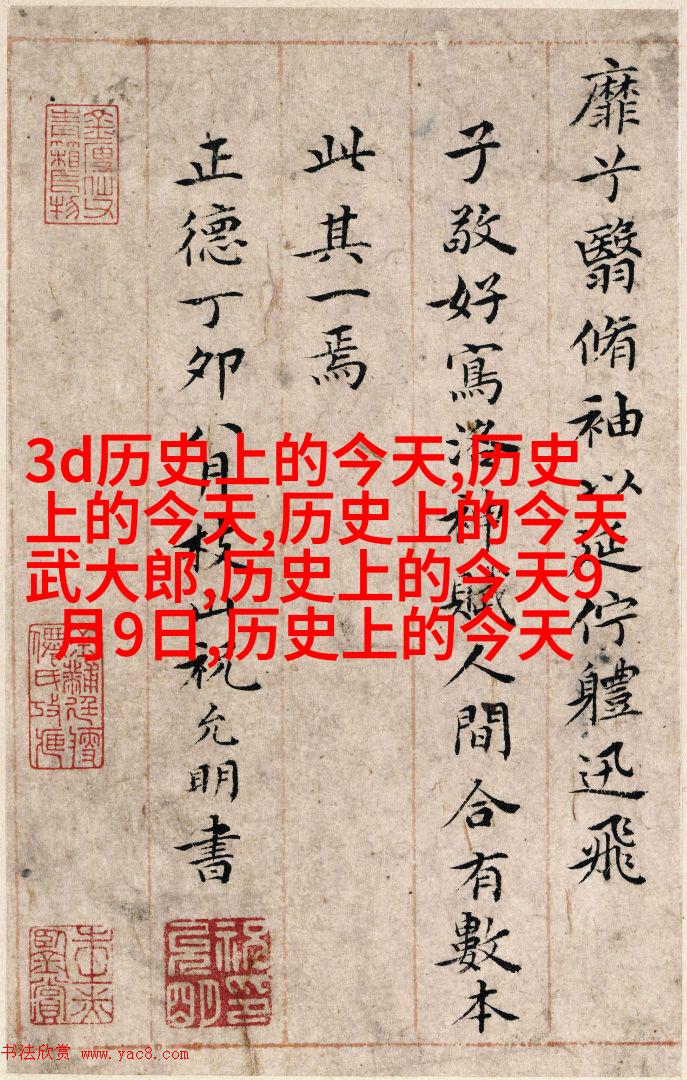 靡兮翳脩袖以延佇體迅飛
子敬好寫洛神賦人間合有數本
此其一焉
正德丁卯八月枝山祝允明書
3d历史上的今天,历史
上的今天,历史上的今天
武大郎,历史上的今天9
月9日,历史上的今天
书法欣赏 www.yac8.com